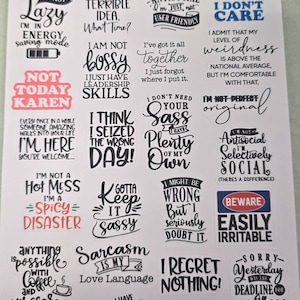 Lazy
I'M IN
ENERGY
Saving mode
TERRIBLE
IDEA.
What Time?
I'M JUST not
USER FRIENDLY
I DON'T
CARE
I AM NOT
bossy
I JUST HAVE
LEADERSHIP
SKILLS
I've got it all
together
I just forgot
where I put it
I ADMIT THAT MY
LEVEL OF
weirdness
IS ABOVE THE
NATIONAL AVERAGE,
BUT I'M COMFORTABLE
WITH THAT.
NOT
TODAY
KAREN
I'M NOT PERFECT
original
EVERY ONCE IN A WHILE
SOMEONE AMAZING
WALKS INTO YOUR LIFE
I'M HERE
YOU'RE WELCOME...
I THINK
I SEIZED
THE WRONG
DAY!
I DON'T NEED
YOUR
Sass
I HAVE
Plenty
OF MY
Own
I'm Not
Antisocial
I'm
Selectively
SOCIAL
(THERE'S A DIFFERENCE)
I'm Not a
HOT MESS
I'M A
SPICY
DISASTER
GOTTA
Keep
IT
Sassy
I MIGHT BE
WRONG
BUT I
seriously
DOUBT IT
BEWARE
EASILY
IRRITABLE
ANYTHING
is possible
WITH
Coffee
and
Sarcasm
IS MY
Love Language
I REGRET
NOTHING!
SORRY
Yesterday
WAS THE
DEADLINE
FOR
I HAVE